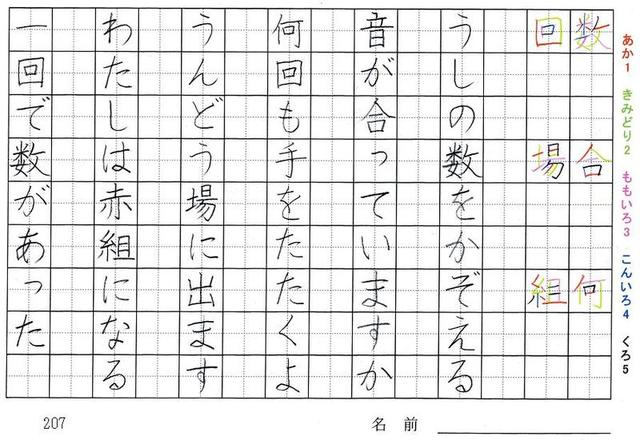 あか1 きみどり2 ももいろ3 こんいろ4 くろ5
数 合 何
回 場 組
うしの数をかぞえる
音が合っていますか
何回も手をたたくよ
うんどう場に出ます
わたしは赤組になる
一回で数があった
名前
207